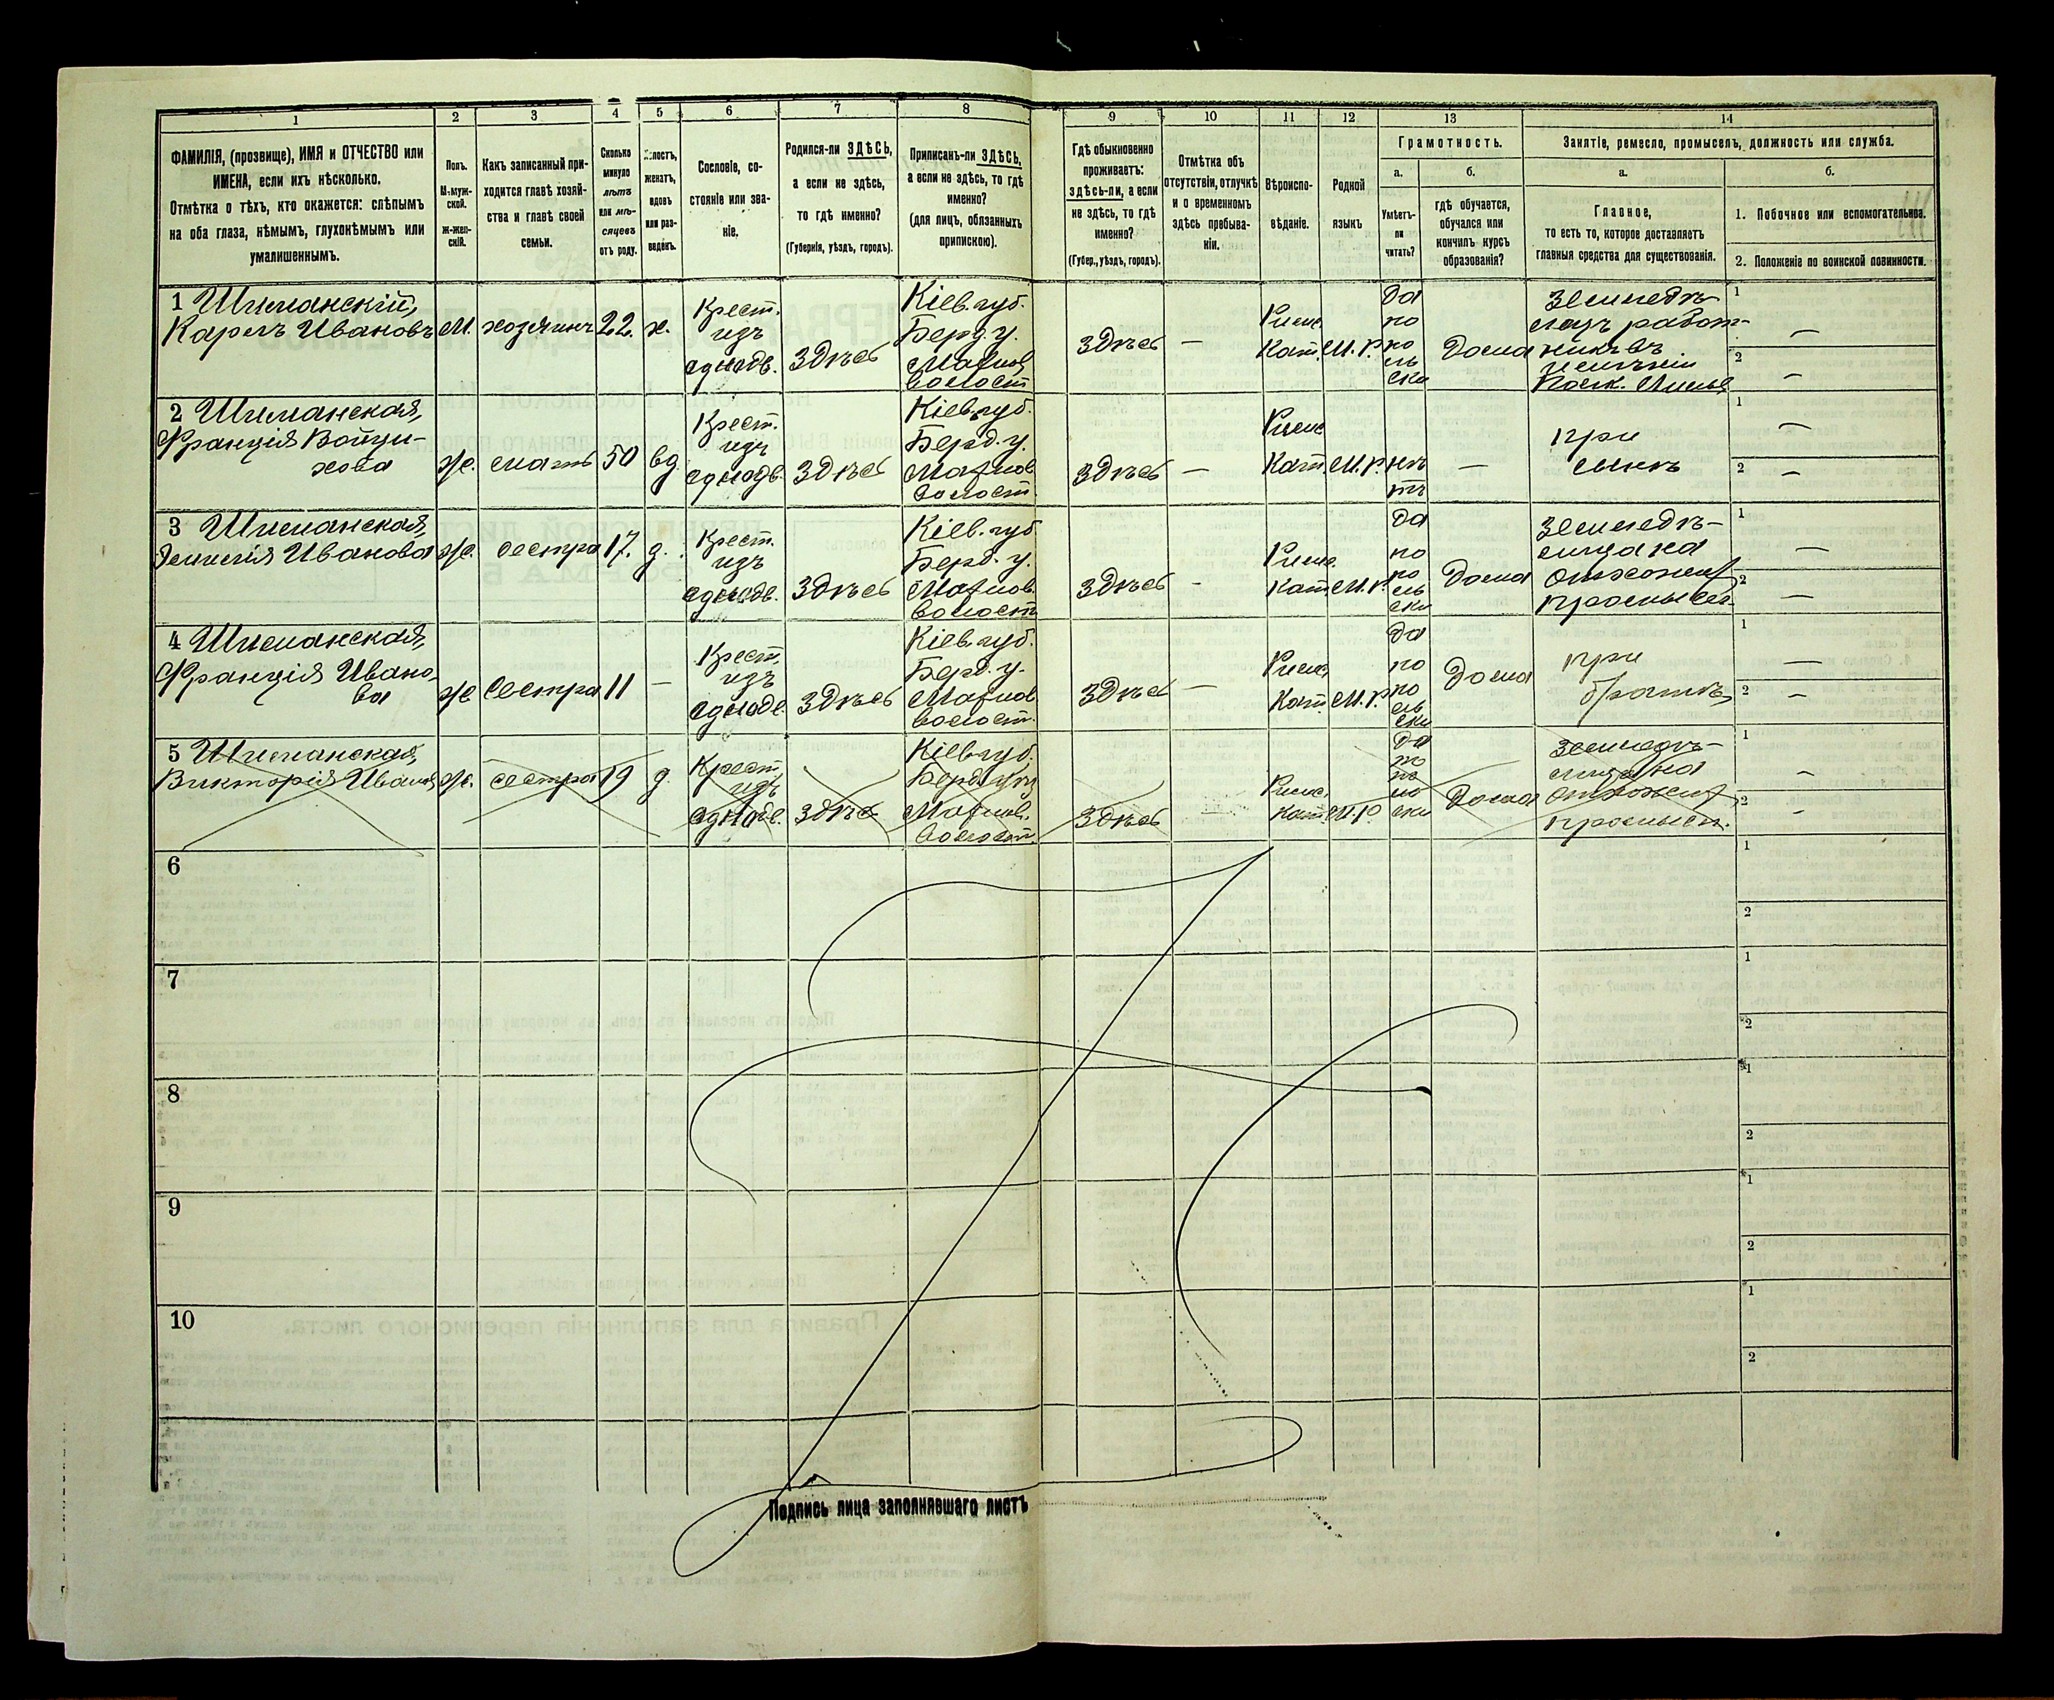 1 2 3 4 5 6 7 8 9 10 11 12 13 14
ФАМИЛІЯ, (прозвище), ИМЯ и ОТЧЕСТВО или
ИМЕНА, если ихъ нѣсколько.
Отмѣтка о тѣхъ, кто окажется: слѣпымъ
на оба глаза, нѣмымъ, глухонѣмымъ или
умалишеннымъ.
Полъ.
М-муж-
ской.
Ж-жен-
скій.
Какъ записанный при-
ходится главѣ хозяй-
ства и главѣ своей
семьи.
Сколько
минуло
лѣтъ
или мѣ-
сяцевъ
отъ роду.
Холостъ,
женатъ,
вдовъ
или раз-
веденъ.
Сословіе, со-
стояніе или зва-
ніе.
Родился-ли ЗДѢСЬ,
а если не здѣсь,
то гдѣ именно?
(Губернія, уѣздъ, городъ).
Приписанъ-ли ЗДѢСЬ,
а если не здѣсь, то гдѣ
именно?
(для лицъ, обязанныхъ
припискою).
Гдѣ обыкновенно
проживаетъ:
здѣсь-ли, а если
не здѣсь, то гдѣ
именно?
(Губер., уѣздъ, городъ).
Отмѣтка объ
отсутствіи, отлучкѣ
и о временномъ
здѣсь пребыва-
ніи.
Вѣроиспо-
вѣданіе.
Родной
языкъ
Грамотность.
а.
Умѣетъ-
ли
читать?
б.
гдѣ обучается,
обучался или
кончилъ курсъ
образованія?
Занятіе, ремесло, промыселъ, должность или служба.
а.
Главное,
то есть то, которое доставляетъ
главныя средства для существованія.
б.
1. Побочное или вспомогательное.
2. Положеніе по воинской повинности.
1 Шиманскій,
Карлъ Ивановъ
М.
хозяинъ
22.
х.
Крест.
изъ
однодв.
Здѣсь
Кіев. губ.
Берд. у.
волост.
Здѣсь
—
Римс.
Кат.
М. Р.
Да
по
по
ль
ски
Дома
Земледѣ-
лецъ работ-
никъ въ
имѣніи
1 —
2 —
2 Шиманская,
Францiя Войци-
хова
ж.
мать
50
вд.
Крест.
изъ
однодв.
Здѣсь
Кіев. губ.
Берд. у.
волост.
Здѣсь
—
Римс.
Кат.
М. Р.
нѣ
тъ
—
при
сынѣ
1 —
2 —
3 Шиманская,
Иванова
ж.
сестра
17.
д.
Крест.
изъ
однодв.
Здѣсь
Кіев. губ.
Берд. у.
волость
Здѣсь
—
Римс.
Кат.
М. Р.
да
по
по
ль
ски
Дома
Земледѣ-
лица на
отхожемъ
промыслѣ
1 —
2 —
4 Шиманская,
Францiя Ивано-
ва
ж.
Сестра
11
—
Крест.
изъ
однодв.
Здѣсь
Кіев. губ.
Берд. у.
волост.
Здѣсь
—
Римс.
Кат.
М. Р.
да
по
по
ль
ски
Дома
при
братѣ
1 —
2 —
5 Шиманская,
Викторія Иванов.
ж.
сестра
19
д.
Крест.
изъ
однодв.
Здѣсь
Кіев. губ.
Берд. у.
волост.
Здѣсь
Римс.
Кат.
М. Р.
да
по
по
ль
ски
Дома
Земледѣ-
лица на
отхожемъ
промысл.
1 —
2 —
6
1
2
7
1
2
8
1
2
9
1
2
10
1
2
Подпись лица заполнявшаго листъ